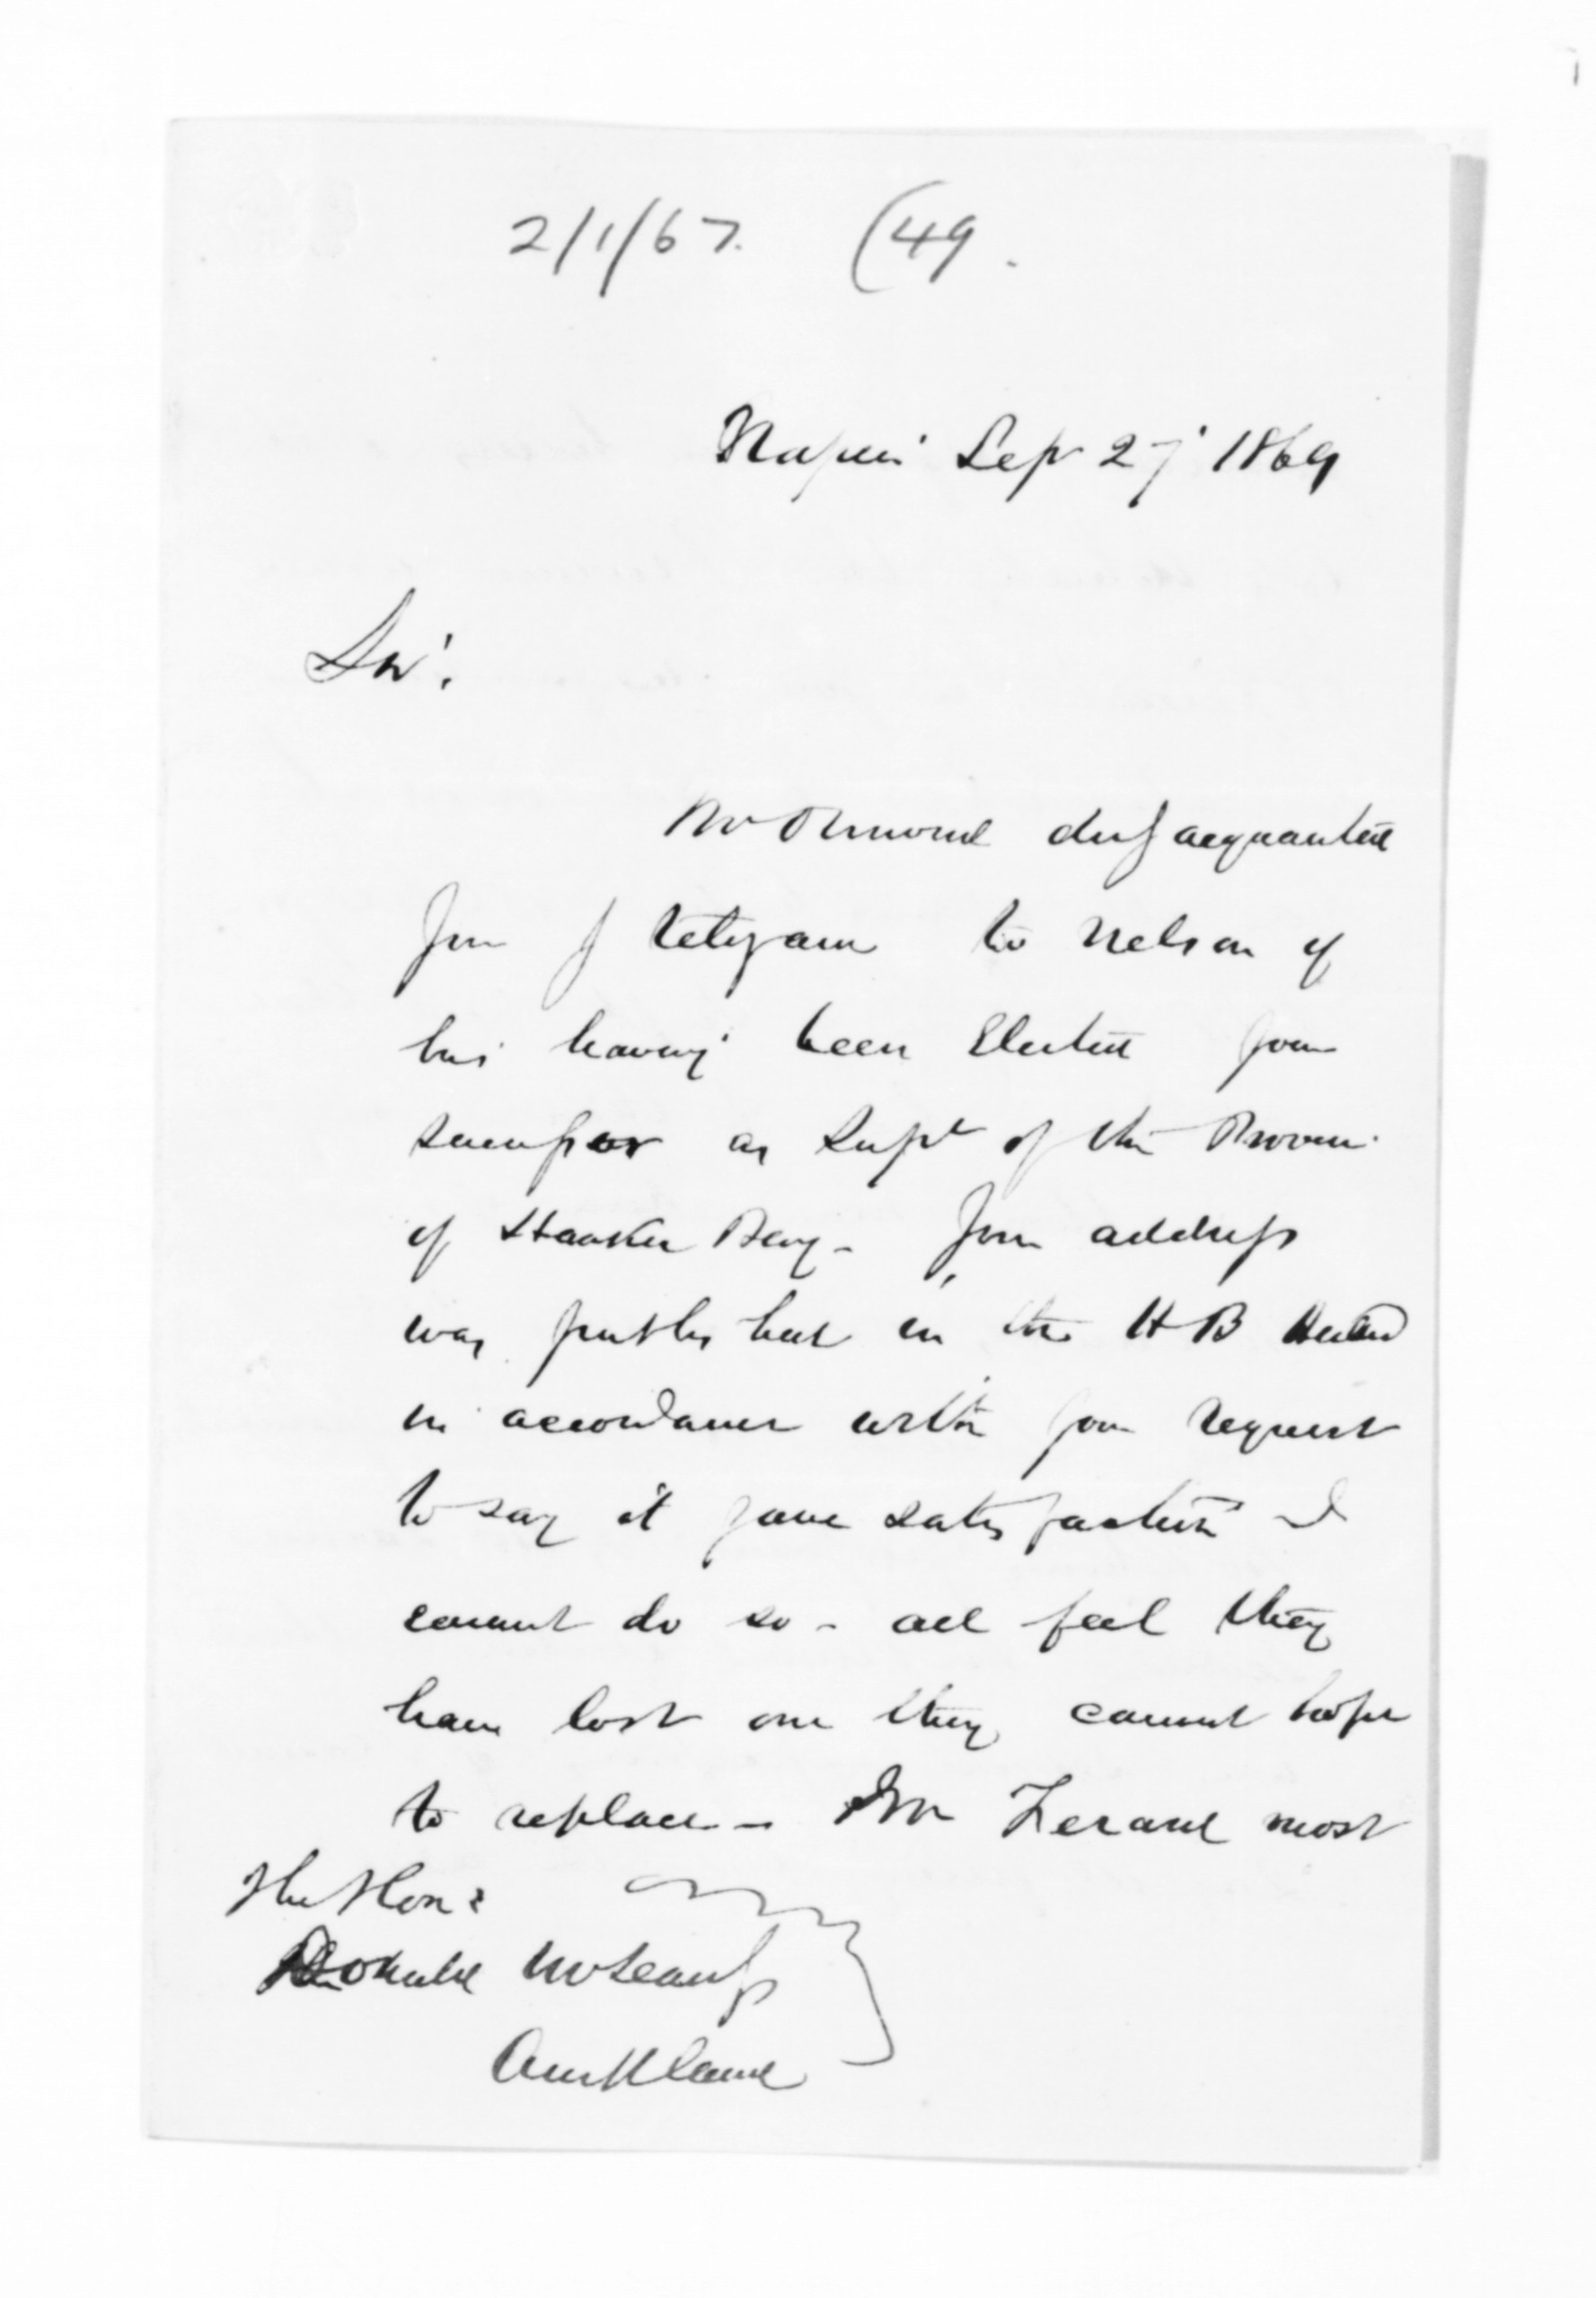 2/1/67. (49.
Napier Sep 27 1869
Sir.
Mr Ormond duly acquainted
you by telegram to Nelson of
his having been Elected your
successor as Supt of the Province
of Hawkes Bay - Your address
was published in the H B Herald
in accordance with your request
to say it gave satisfaction I
cannot do so - all feel they
have lost one they cannot hope
to replace - Mr most
The Hon:
Donald McLean
Auckland